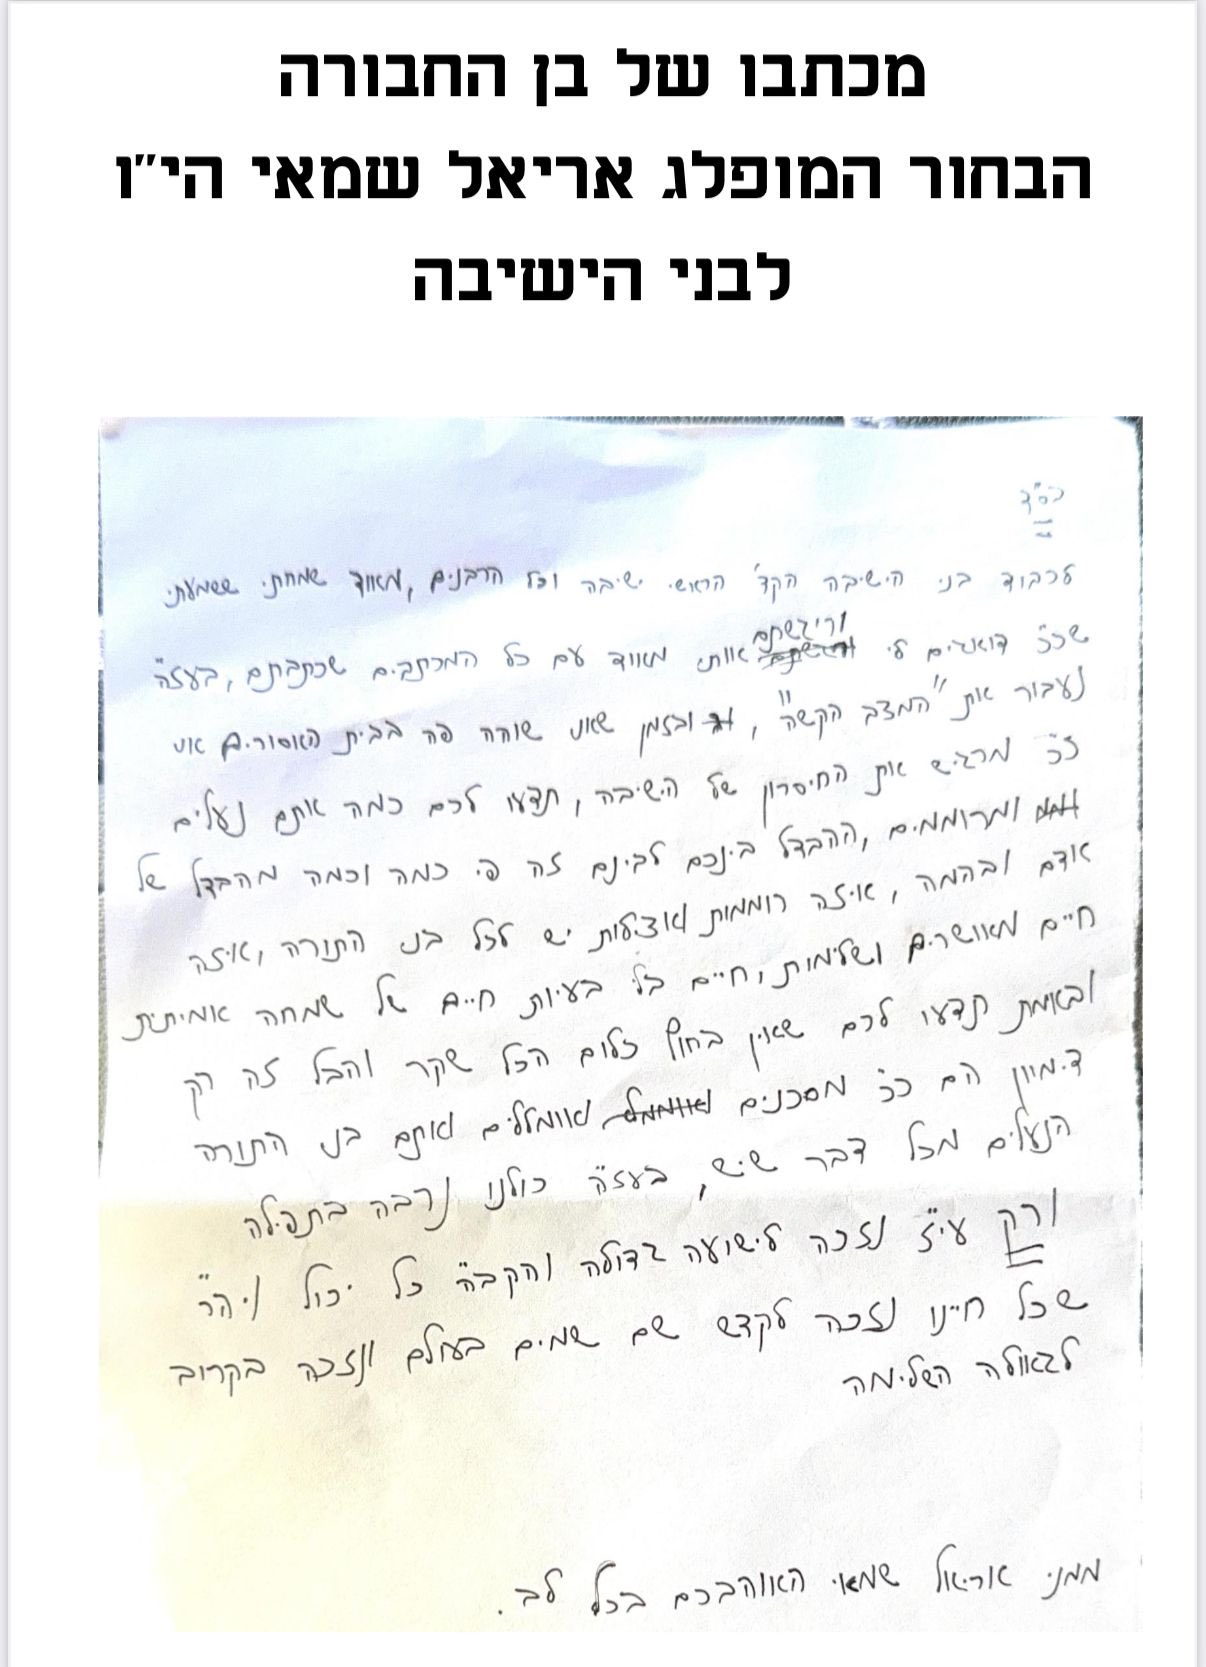 מכתבו של בן החבורה
הבחור המופלג אריאל שמאי הי״ו
לבני הישיבה
בס"ד
לכבוד בני הישיבה הקד' הראשי ישיבה וכל הרבנים, מאוד שמחתי ששמעתי
וריגשתם
שכ"כ דואגים לי אותי מאוד עם כל המכתבים שכתבתם, בעז"ה
נעבור את "המצב הקשה", ובזמן שאני שוהה פה בבית האסורים אני
כ"כ מרגיש את החיסרון של הישיבה, תדעו לכם כמה אתם נעלים
ומרוממים, ההבדל בינכם לבינם זה פי כמה וכמה מהבדל של
אדם ובהמה, איזה רוממות ואצילות יש לכל בני התורה, איזה
חיים מאושרים ושלימות, חיים בלי בעיות חיים של שמחה אמיתית
ובאמת תדעו לכם שאין בחוץ כלום הכל שקר והבל זה רק
דמיון הם כ"כ מסכנים ואומללים ואתם בני התורה
הנעלים מכל דבר שיש, בעז"ה כולנו נרבה בתפילה
ורק עי"ז נזכה לישועה גדולה והקב"ה כל יכול ויה"ר
שכל חיינו נזכה לקדש שם שמים בעולם ונזכה בקרוב
לגאולה השלימה
ממני אריאל שמאי האוהבכם בכל לב.